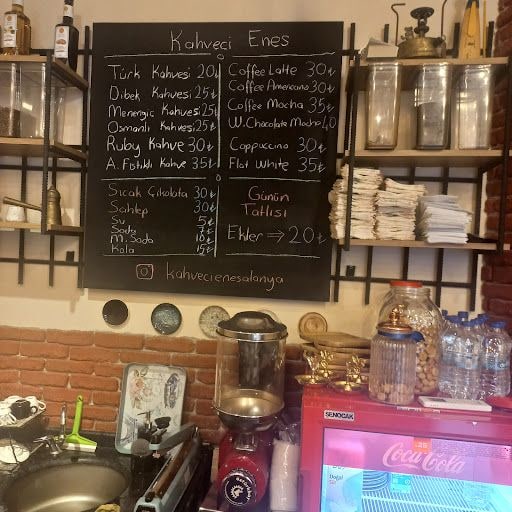 Kahveci Enes
Türk Kahvesi 20₺
Dibek Kahvesi 25₺
Menengic Kahvesi 25₺
Osmanlı Kahvesi 25₺
Ruby Kahve 30₺
A. Fıstıklı Kahve 35₺
Coffee Latte 30₺
Coffee Americano 30₺
Coffee Mocha 35₺
W. Chocolate Mocha 40
Cappuccino 30₺
Flat White 35₺
Sıcak Çikolata 30₺
Sahlep 30₺
Su 5₺
Soda 7₺
M. Soda 10₺
Kola 15₺
Günün
Tatlısı
Ekler ⇒ 20₺
kahvecienesalanya
SENOCAK
Coca-Cola
Doğal